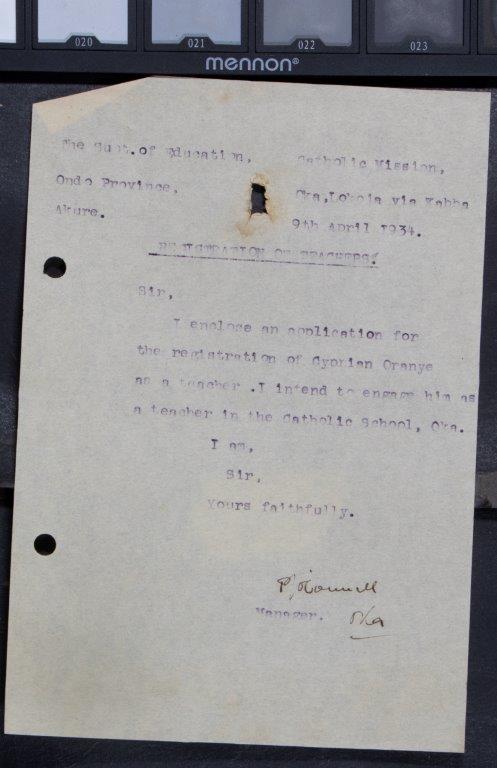 020 021 022 023
mennon®
The Supt.of Education,
Ondo Province,
Akure.
Catholic Mission,
Oka,Lokoja via Kabba
9th April 1934.
REGISTRATION OF TEACHERS.
Sir,
I enclose an application for
the registration of Cyprian Oranye
as a teacher .I intend to engage him as
a teacher in the Catholic School, Oka.
I am,
Sir,
Yours faithfully.
P. O'Connell
Manager. Oka